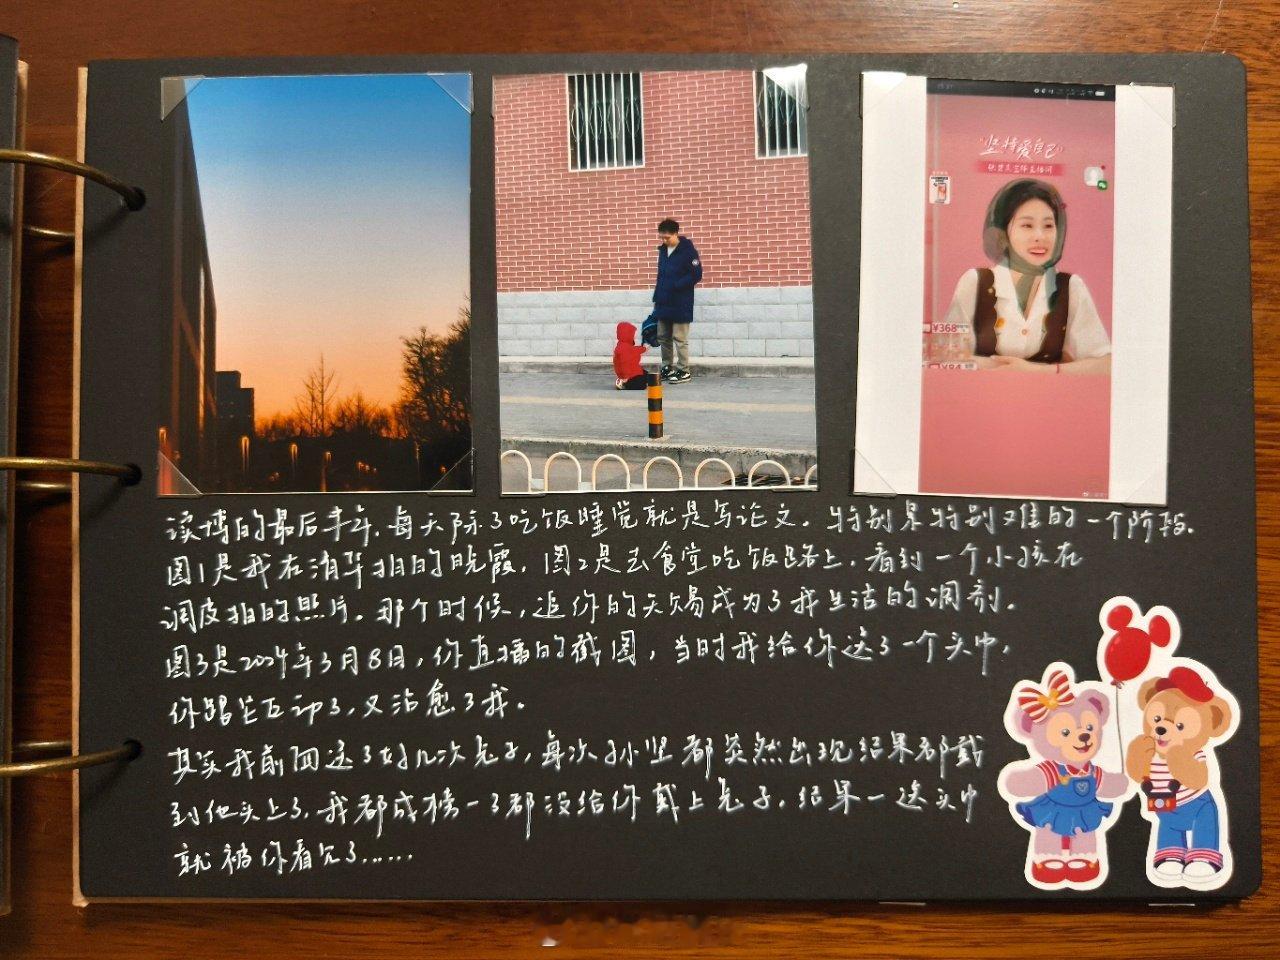 坚持爱自己
¥368
¥84
读博的最后半年，每天除了吃饭睡觉就是写论文，特别累特别难的一个阶段。
图1是我在清华拍的晚霞，图2是去食堂吃饭路上，看到一个小孩在
调皮拍的照片。那个时候，追你的天赐成为了我生活的调剂。
图3是2024年3月8日，你直播的截图，当时我给你送了一个头巾，
你跟它互动了，又治愈了我。
其实我前面送了好几次兔子，每次孙坚都突然出现结果都戴
到他头上了，我都成榜一了都没给你戴上兔子，结果一送头巾
就被你看见了……